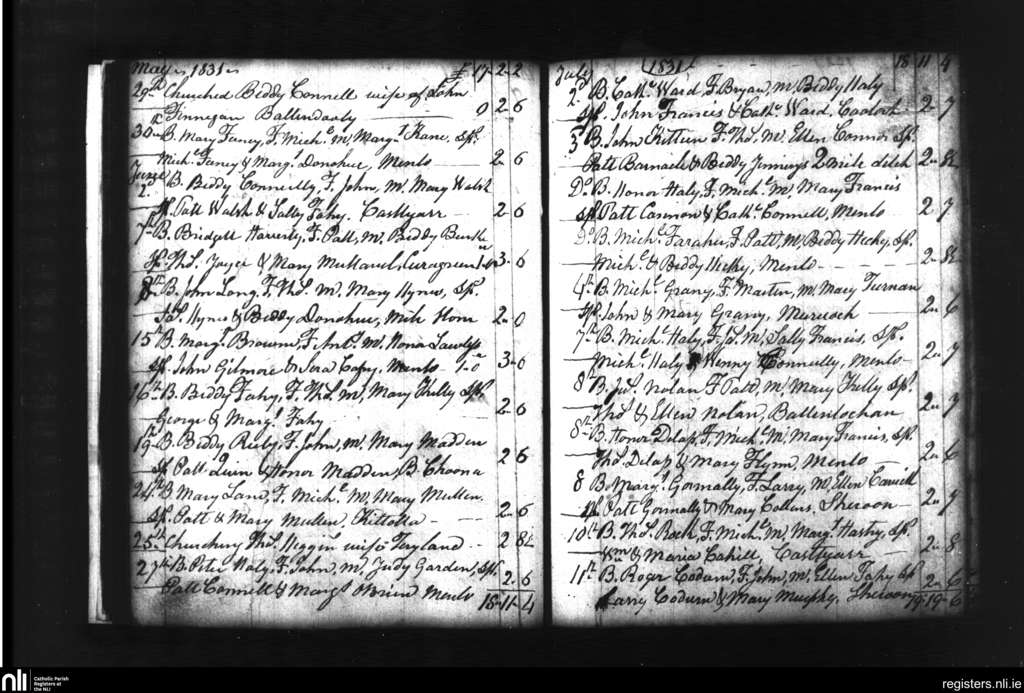 May 1831 £ 17 2 2
29th Churched Biddy Connell wife of John
Finnegan Ballindooly 0 2 6
30 B. Mary Faney, F. Michl. M. Margt. Kane, Sps.
Michl. Faney & Margt. Donohue, Menlo 2 6
June
2d B. Biddy Connelly, F. John, M. Mary Walsh
Sp. Patt Walsh & Sally Fahy. Casttgarr 2 6
7th B. Bridgett Harrerty, F. Patt, M. Biddy Burke
Sp. Thos. Joyce & Mary Mullanel, Curagreen 3 6
B. John Long, F. Thos. M. Mary Hynes, Sps.
Jas. Hynes & Biddy Donohue, Mile 2 0
15 B. Margt. Browne, F. Ant. M. Nona Lawless
Sp. John Gilmore & Menlo 1-0 3-0
16th B. Biddy Fahy, F. Thos. M. Mary Kelly Sps.
George & Margt. Fahy 2 6
19th B. Biddy Ruby, F. John, M. Mary Madden
Sp. Patt Quin & Honor Madden, B. Choona 2 6
24th B. Mary Lane, F. Michl. M. Mary Mullen.
Sp. Patt & Mary Mullen, Killolla 2 6
25th Churching Thos. Higgin wife Teryland 2 8½
27th B. Peter Haly, F. John, M. Judy Garden, Sps. 2 6
Patt Connell & Margt. OBrien Menlo 18-11-4
July 1831 18 11 4
2 B. Cathe. Ward, F. Bryan, M. Biddy Haly
Sp. John Francis & Cathe. Ward, Cooloch 2 7
3 B. John Kitteen F. Thos. M. Ellen Connor Sps.
Patt Barnacle & Biddy Jennings 2 Mile ditch 2 8½
Do. B. Honor Haly, F. Michl. M. Mary Francis
Sp. Patt Cannon & Cathe. Connell, Menlo 2 7
Do. B. Michl. Faraher, F. Patt, M. Biddy Hecky, Sps.
Michl. & Biddy Hecky, Menlo 2 8½
4th B. Michl. Grany, F. Martin, M. Mary Turnan
Sp. John & Mary Grany, Murroch 2 6
7th B. Michl. Haly, F. Jas. M. Sally Francis, Sps.
Michl. Haly & Wenny Connelly, Menlo 2 7
8 B. Jas. Nolan F. Patt, M. Mary Kelly Sps.
Thos. & Ellen Nolan, Ballinlochan 2 7
8th B. Honor Delap, F. Michl. M. Mary Francis, Sps.
Thos. Delap & Mary Flynn, Menlo 2 6
8 B. Margt. Gonnally, F. Larry, M. Ellen
Sp. Patt Gonnally & Mary Collins, Sheroon 2 7
10th B. Thos. Roch, F. Michl. M. Margt. Harty, Sps.
Wm. & Maria Cahill, Casttgarr 2 8
11th B. Roger Codurn, F. John, M. Ellen Fahy Sps. 2 6
Larry Codurn & Mary Murphy, Sheroon 19-19-6
nli Catholic Parish
Registers at
the NLI
registers.nli.ie